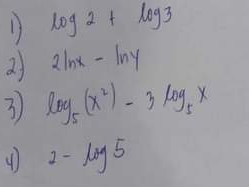 1) log 2 + log 3
2) 2lnx - lny
3) log₅(x²) - 3 log₅ x
4) 2 - log 5